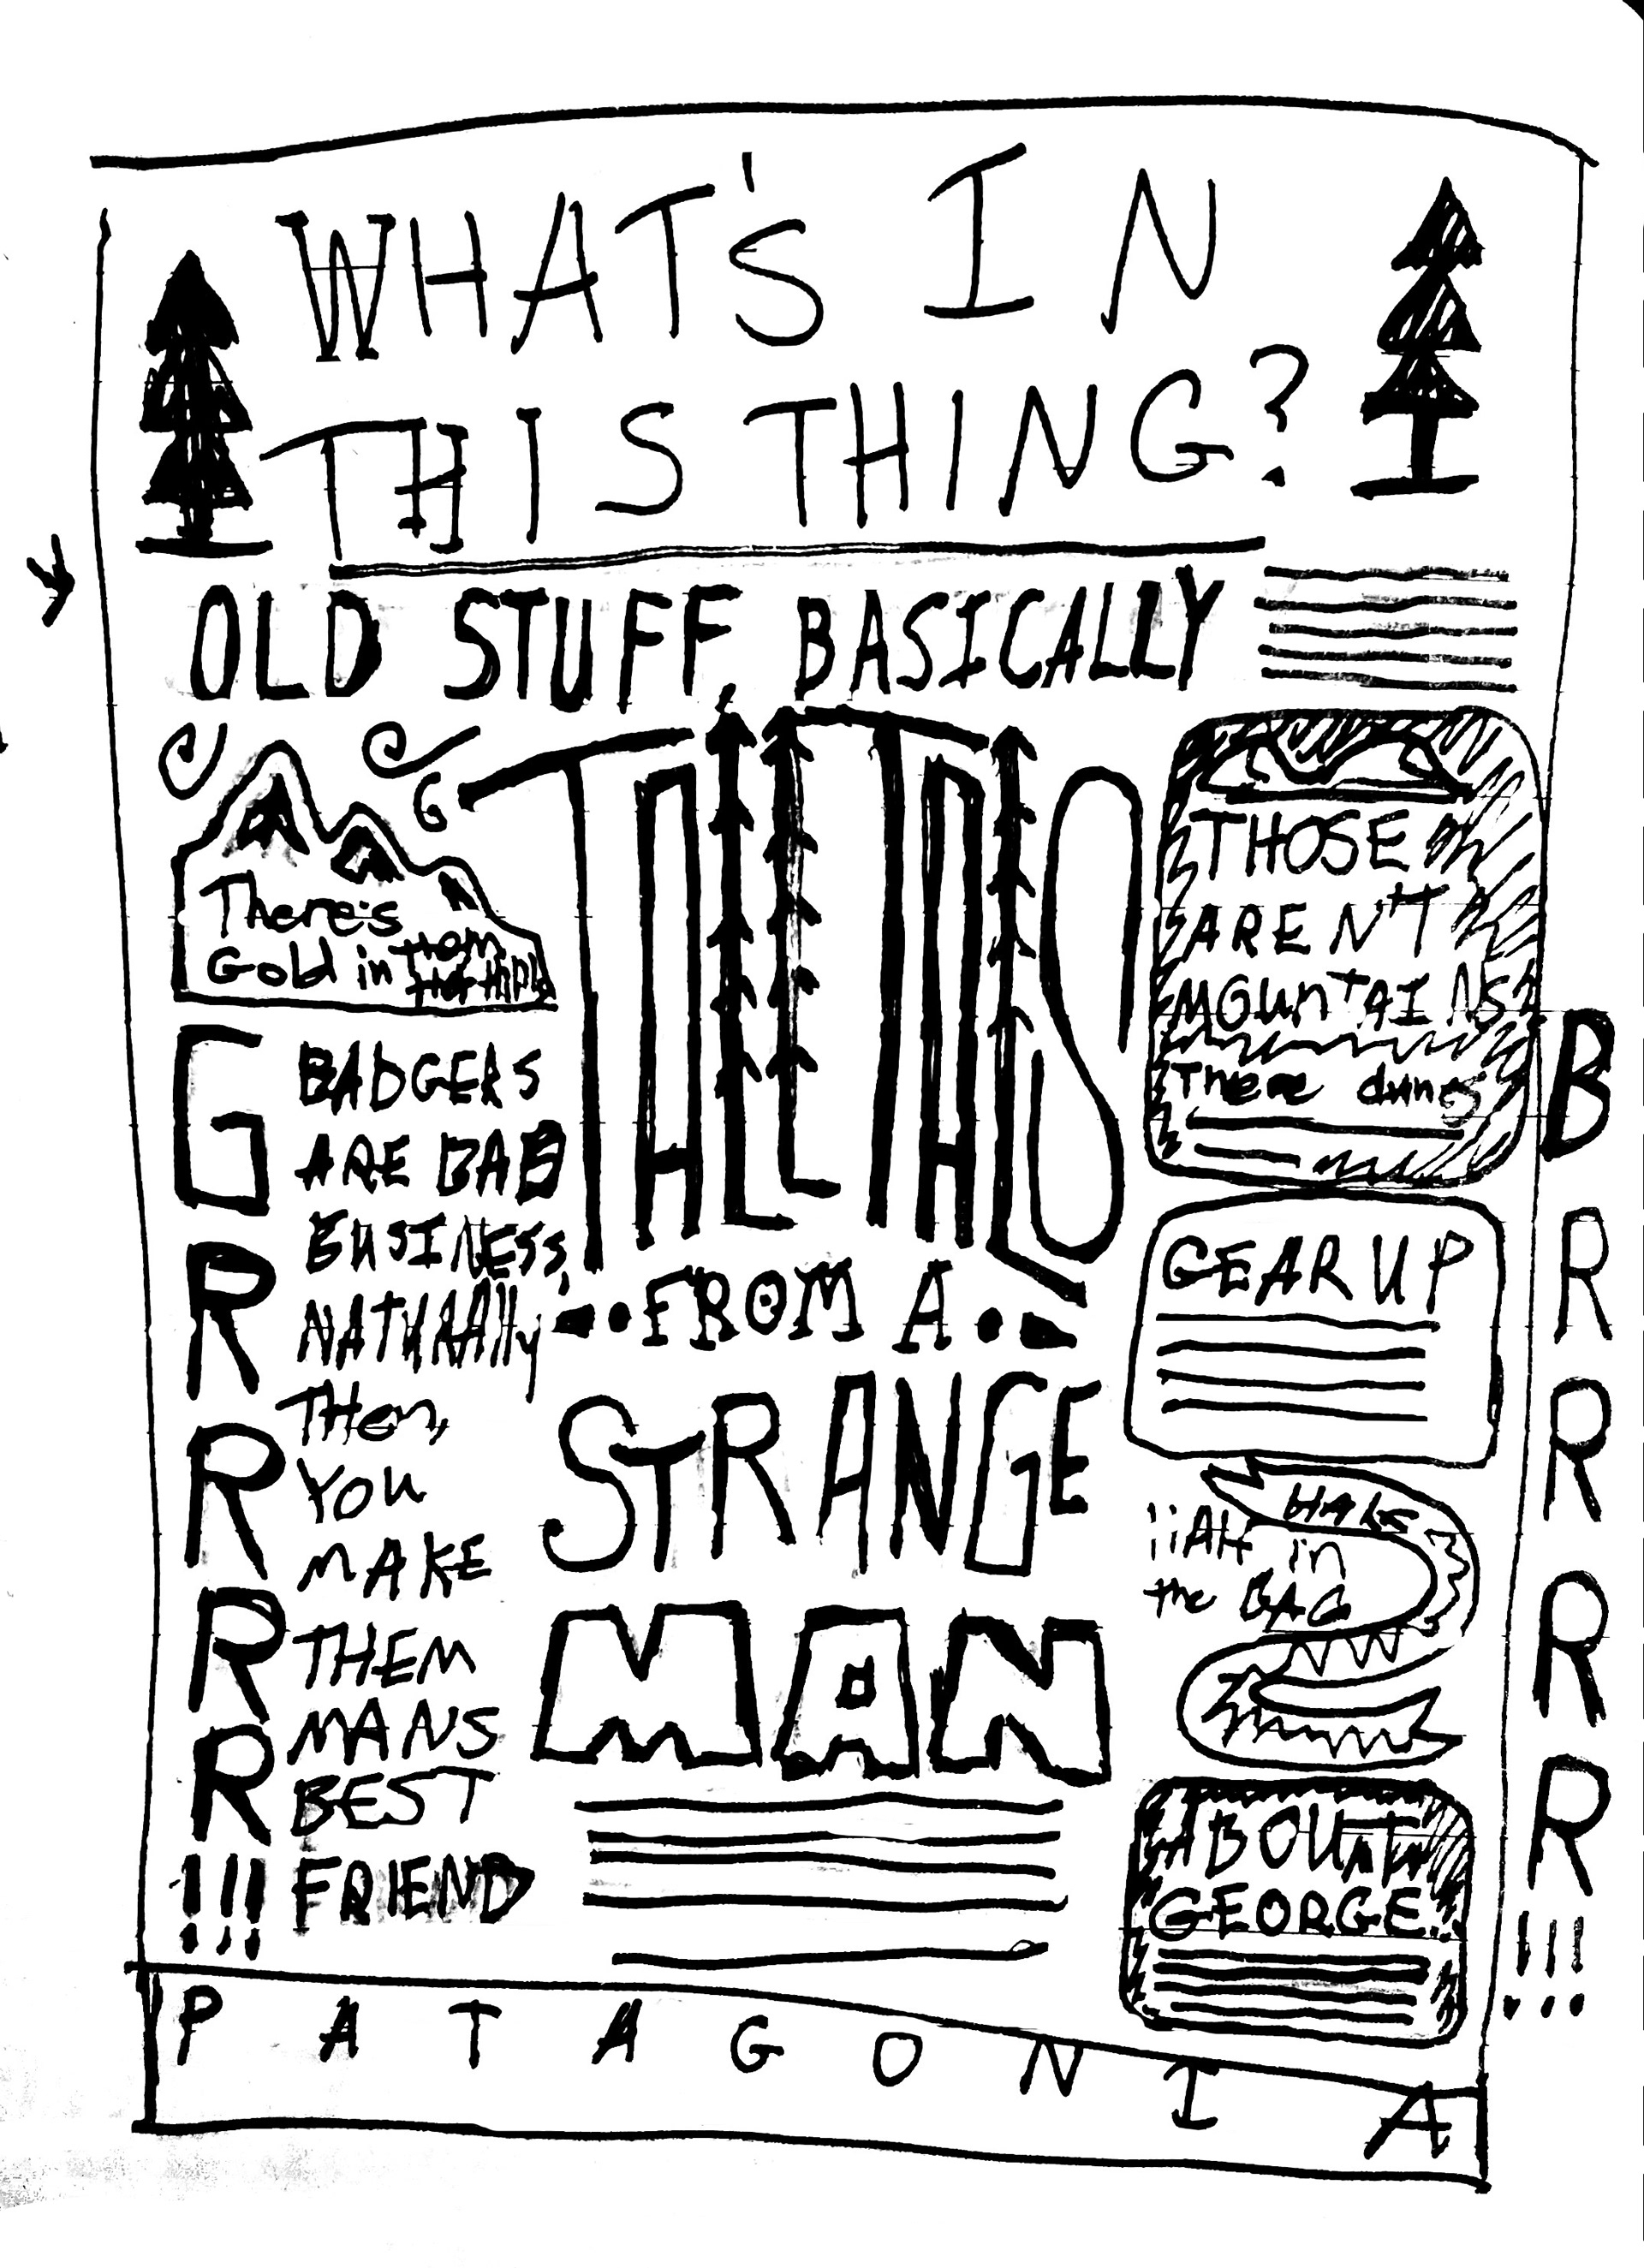 WHAT'S IN
THIS THING?
OLD STUFF, BASICALLY
There's
Gold in
TALL TALES
FROM A
STRANGE
MAN
THOSE
AREN'T
MOUNTAINS
These dunes
GEAR UP
HALF
HALF in
the BAG
ABOUT
GEORGE
GRRRR!!!
BADGERS
ARE BAD
BUSINESS,
NATURALLY
THEN,
YOU
MAKE
THEM
MANS
BEST
FRIEND
BRRRR!!!
PATAGONIA